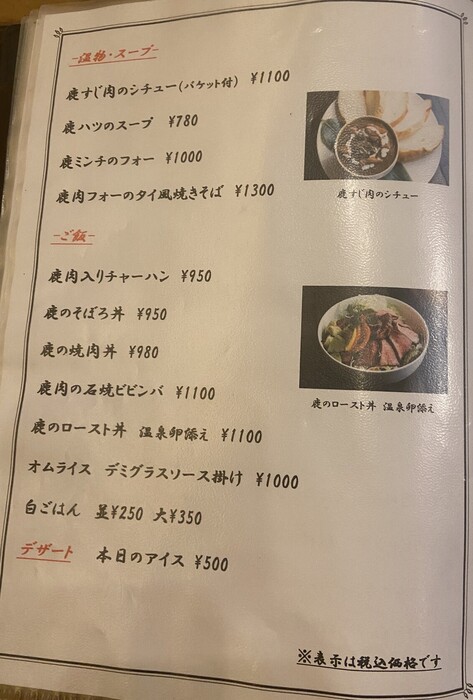 -温物・スープ-
鹿すじ肉のシチュー(バケット付) ¥1100
鹿ハツのスープ ¥780
鹿ミンチのフォー ¥1000
鹿肉フォーのタイ風焼きそば ¥1300
鹿すじ肉のシチュー
-ご飯-
鹿肉入りチャーハン ¥950
鹿のそぼろ丼 ¥950
鹿の焼肉丼 ¥980
鹿肉の石焼ビビンバ ¥1100
鹿のロースト丼 温泉卵添え
鹿のロースト丼 温泉卵添え ¥1100
オムライス デミグラスソース掛け ¥1000
白ごはん 並¥250 大¥350
デザート 本日のアイス ¥500
※表示は税込価格です